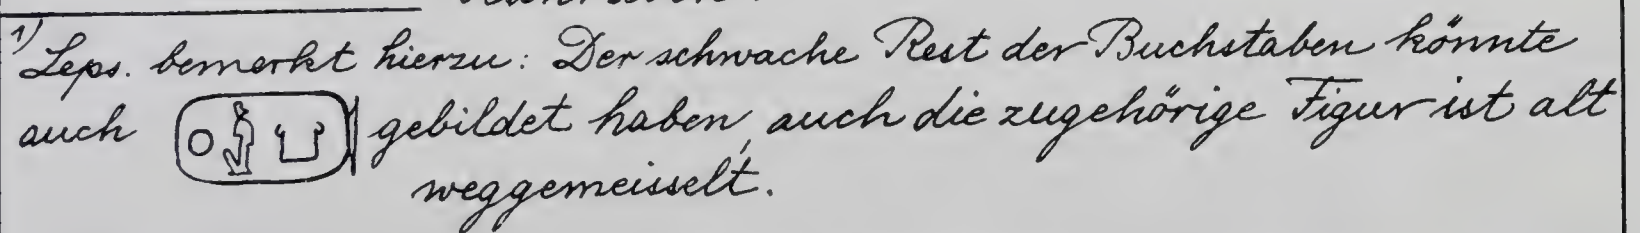 1) Leps. bemerkt hierzu: Der schwache Rest der Buchstaben könnte
auch 𓍹𓇳𓁦𓂓𓍺 gebildet haben, auch die zugehörige Figur ist alt
weggemeisselt.